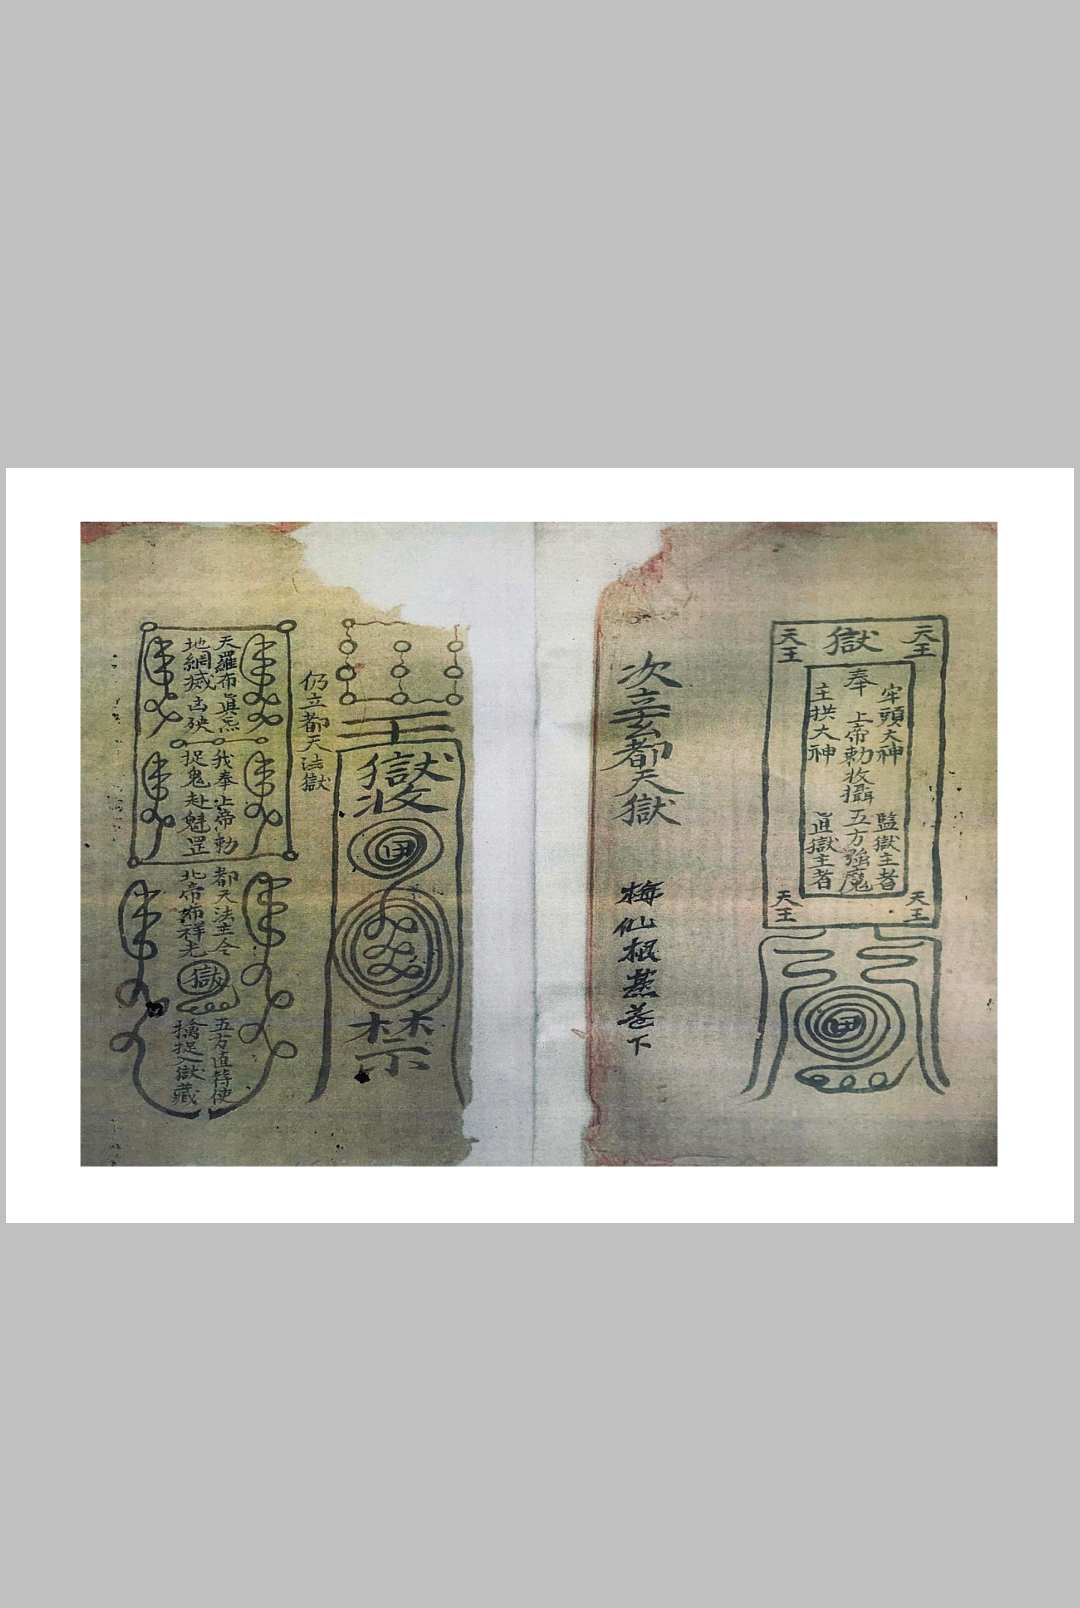 天王
獄
天王
牢頭大神 監獄主者
奉 上帝勅收攝五方強魔
主拱大神 直獄主者
天王
天王
次立玄都天獄
梅仙 卷下
王
獄
禁
仍立都天法獄
天羅布 我奉上帝勅 都天法主令 五方直符使
地網 捉鬼赴魁罡 北帝 祥光 獄 擒捉入獄藏